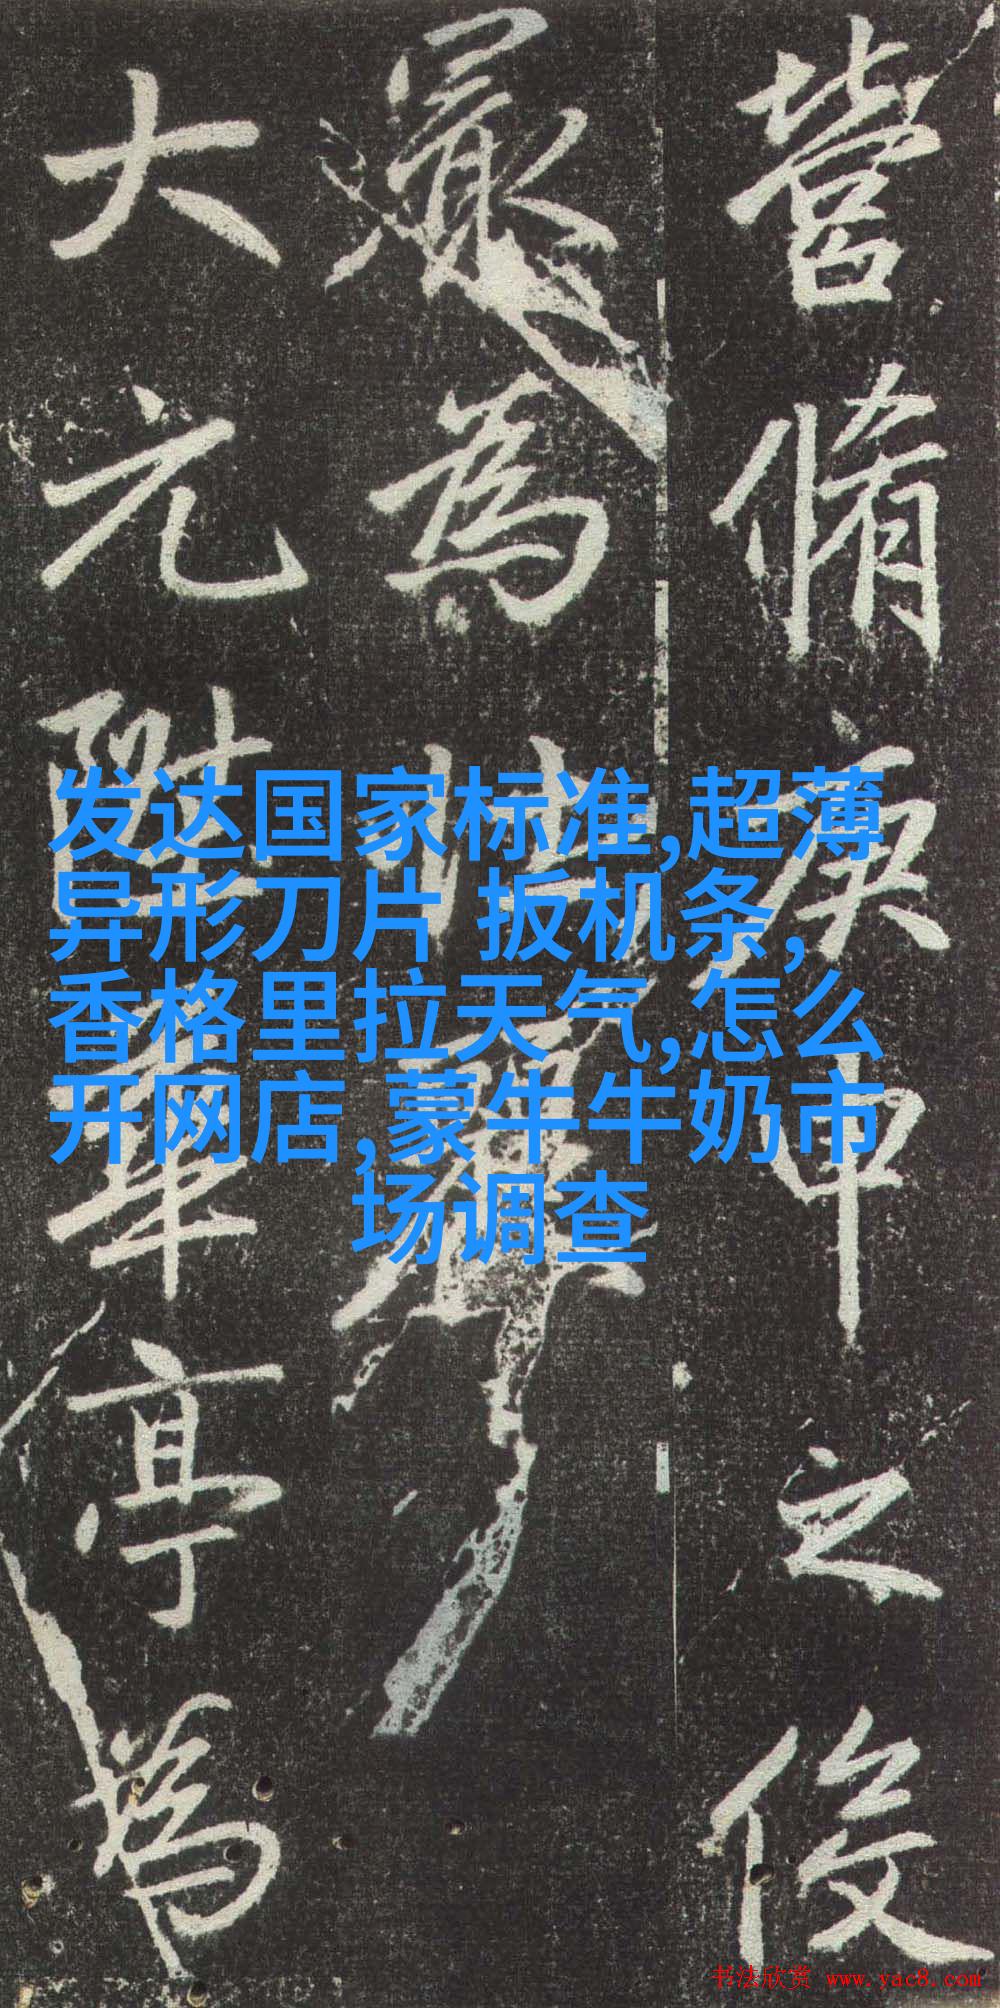 營脩庚申之後
最為壯麗
大元既華亭為
发达国家标准,超薄
异形刀片 扳机条,
香格里拉天气,怎么
开网店,蒙牛牛奶市
场调查
书法欣赏 www.yac8.com